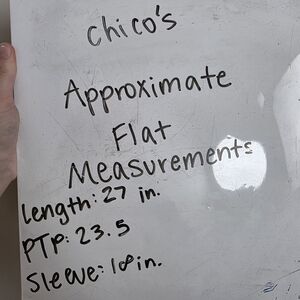 Chico's
Approximate
Flat
Measurements
Length: 27 in.
PTP: 23.5
Sleeve: 18 in.